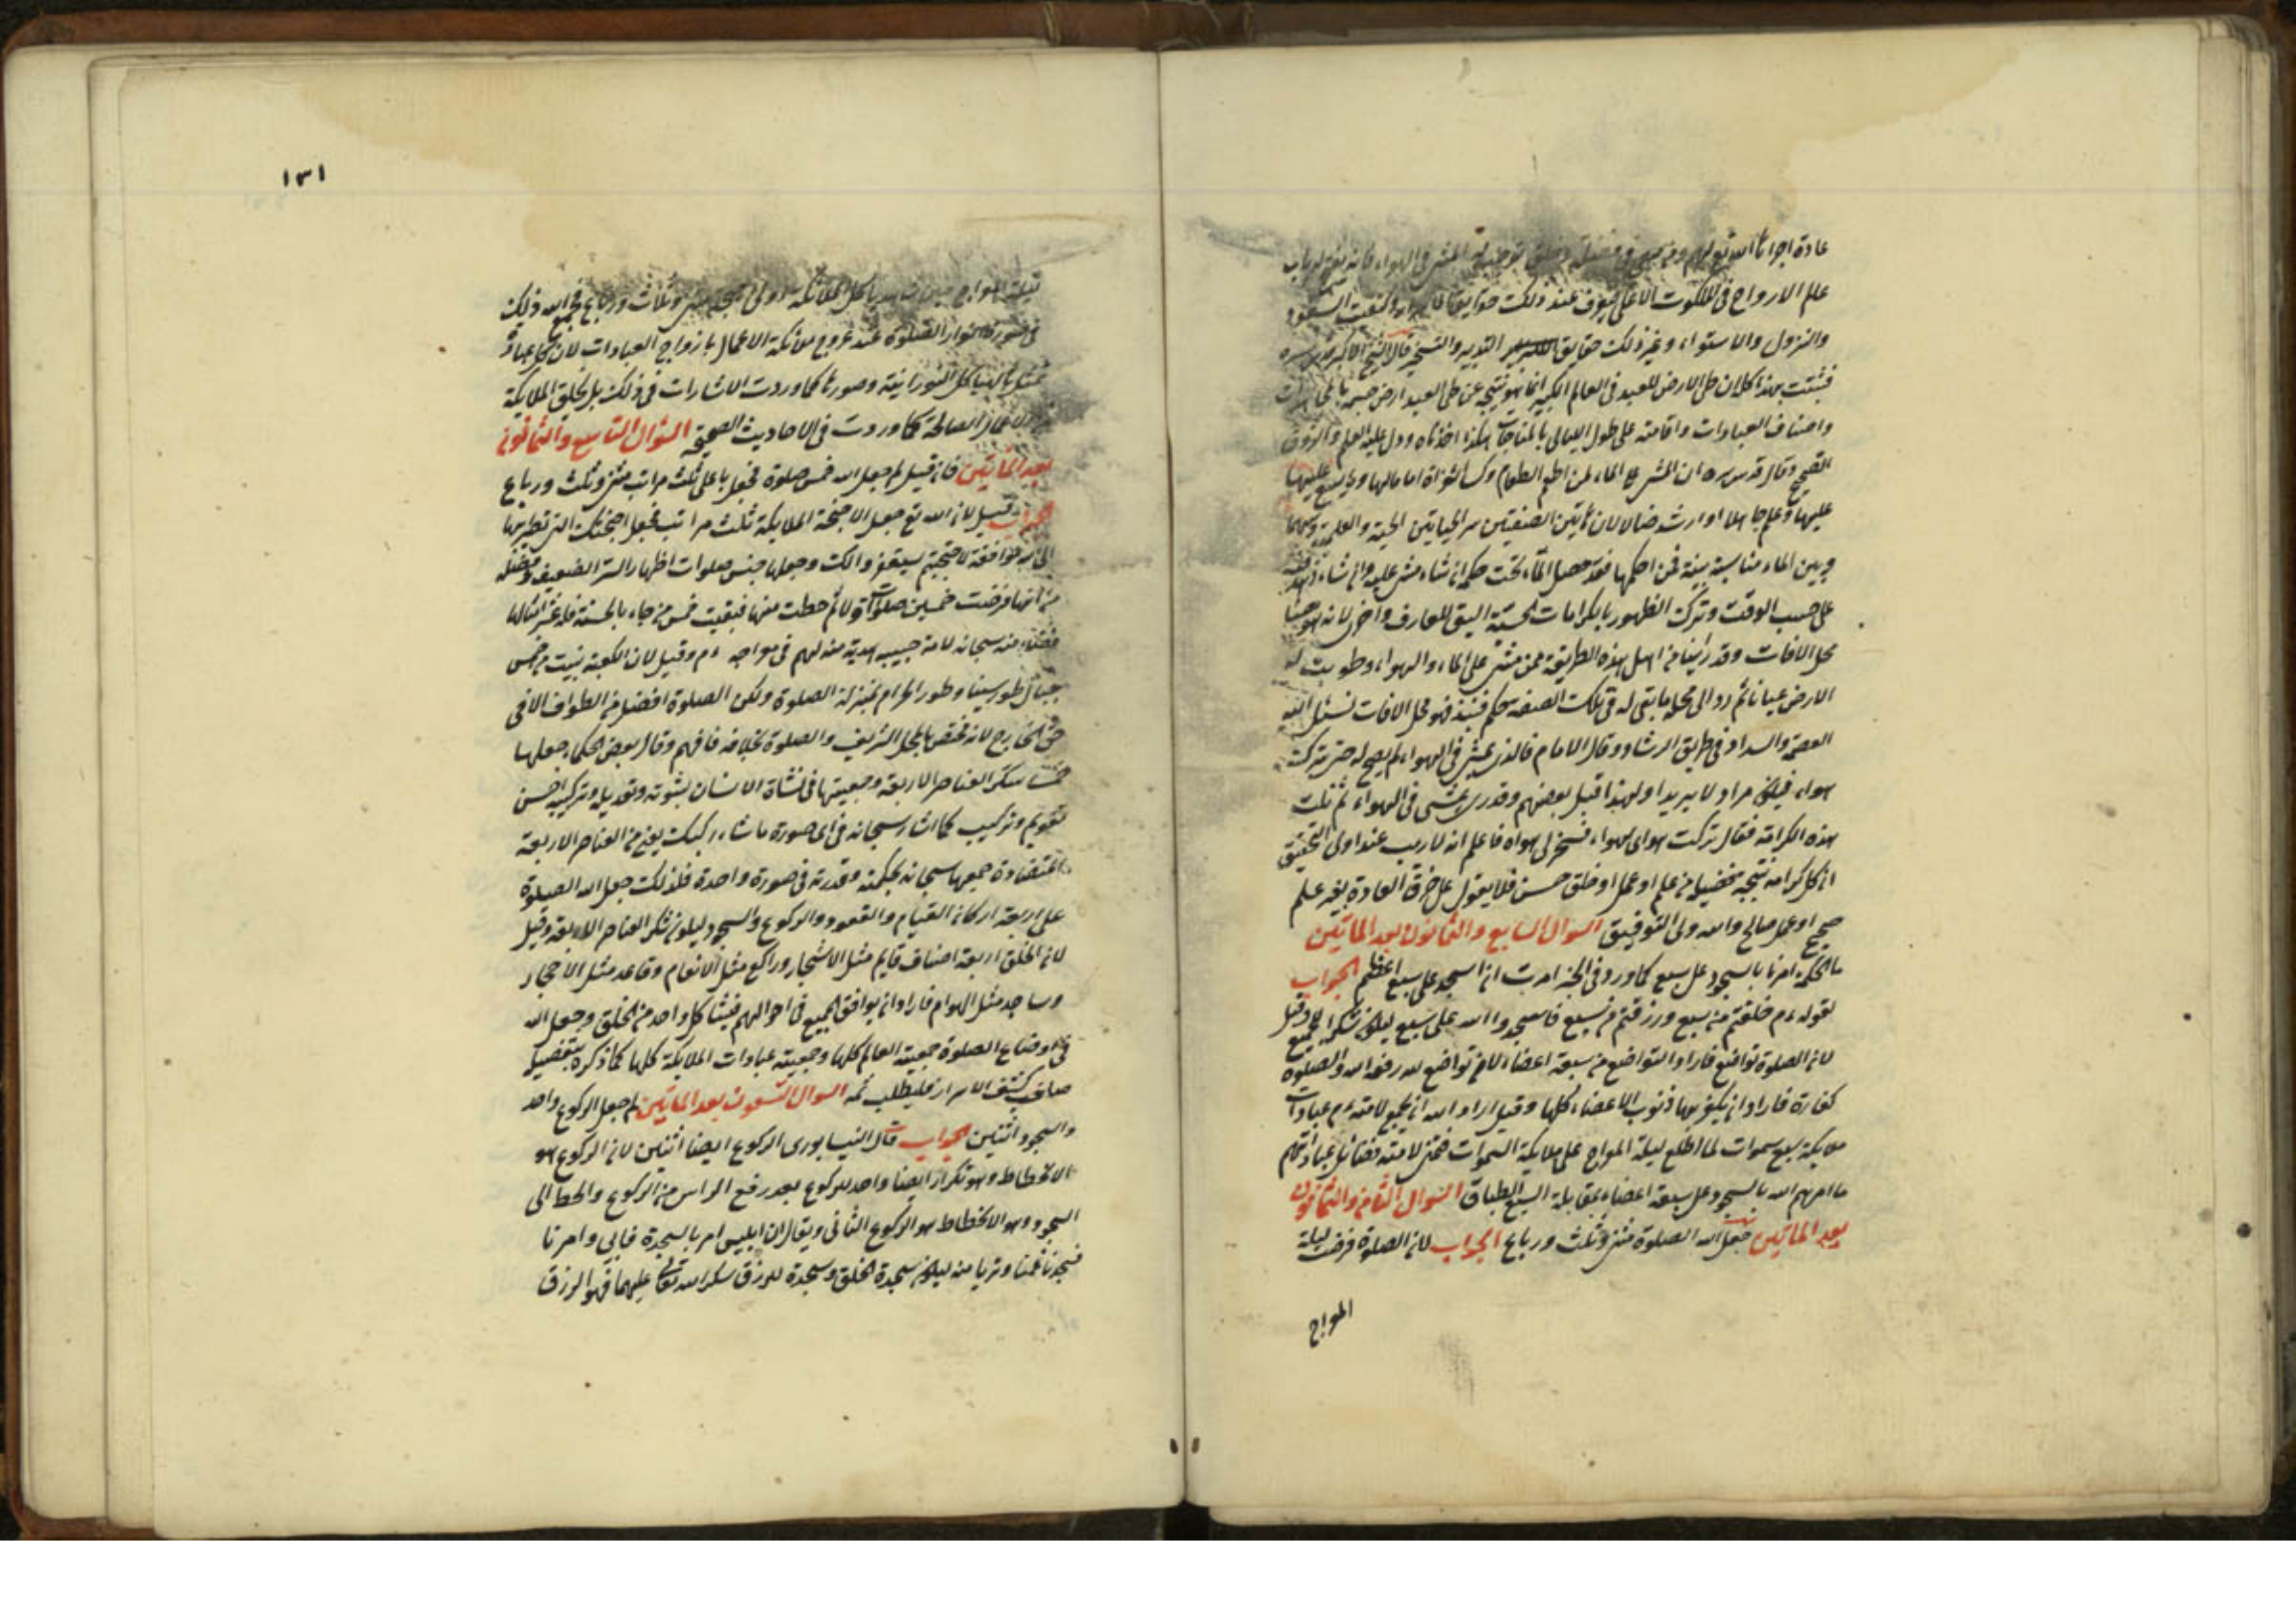 عادة اجراها الله تع لهم المشى فى الهواء فانه يفتح له باب
عالم الارواح فى الملكوت الاعلى فيعرف عند ذلك حقايق
والنزول والاستواء وغير ذلك حقايق التدبير والتسخير قال الشيخ الاكبر قدس سره
فثبتت بهذا كله ان طى الارض للعبد فى العالم الكبير انما هو نتيجة عن طى العبد ارض جسمه بالمجاهدات
واصناف العبادات واقامته على طول الليالى بالمناجات هكذا اخذناه ودل عليه العلم والذوق
الصحيح وقال قدس سره ان المشى على الماء لمن اطعم الطعام وكسا العراة اما مالها
عليها وعلم جاهلا او ارشد ضالا لان هاتين الصفتين سر الحياتين الحسية والعلمية وبينهما
وبين الماء مناسبة بينة فمن احكمها فقد حصل الماء تحت حكمه ان شاء مشى عليه وان شاء زهد فيه
على حسب الوقت وترك الظهور بالكرامات الحسية اليق للعارف واحرى لانه
محل الافات وقد راينا من اهل هذه الطريقة ممن مشى على الماء والهواء وطويت له
الارض عيانا ثم رد الى محله ما بقى له فى تلك الصفه حكم فنبذ فهو محل الافات نسئل الله
العصمة والسداد فى طريق الرشاد وقال الامام فالذى يمشى فى الهواء لم يصح له حتى ترك
هواه فيكون مراد لا يريدا ولهذا قيل بعضهم وقدرى يمشى فى الهواء ثم نلت
هذه الكرامة فقال تركت هواى لهواه فسخر لى هواه فاعلم انه لا ريب عند اولى التحقيق
ان كل كرامة نتيجة تخضيله من علم او عمل او خلق حسن فلا يعول على خرق العادة بغير علم
صحيح او عمل صالح والله ولى التوفيق السوال السابع والثمانون بعد الماتين
ما الحكمة امرنا بالسجود على سبع كما ورد فى الخبر امرت ان اسجد على سبع اعظم الجواب
لقوله ءم خلقتم من سبع ورزقتم من سبع فاسجدوا الله على سبع ليكون شكرا للجميع وقيل
لان الصلوة تواضع فاراد التواضع من سبعة اعضاء لان من تواضع لله رفعه الله والصلوة
كفارة فاراد ان يكفر بها ذنوب الاعضاء كلها وقيل اراد الله ان يجمع لامته ءم عبادات
ملايكة سبع سموات لما اطلع ليلة المعراج على ملايكة السموات فتمنى لامته فضائل عباداتهم
ما امرهم الله بالسجود على سبعة اعضاء بمقابلة السبع الطباق السوال الثامن والثمانون
بعد الماتين جعل الله الصلوة مثنى وثلث ورباع الجواب لان الصلوة فرضت ليلة
المعراج
١٣١
ليلة المعراج هياكل الملائكة اولى اجنحة مثنى وثلاث ورباع فجمع الله ذلك
فى صورة انوار الصلوة عند عروج ملائكة الاعمال بازواج العبادات لان كل عبادة
تتمثل بالهياكل النورانية وصورها كما وردت الاشارات فى ذلك بل يخلق الملايكة
من الاعمال الصالحة كما وردت فى الاحاديث الصحيحة السوال التاسع والثمانون
بعد الماتين فان قيل لم جعل الله خمس صلوة فجعل باعلى ثلث مراتب مثنى وثلث ورباع
الجواب قيل لان الله تع جعل الاجنحة الملايكة ثلث مراتب فجعل اجنحتك التى تطير بها
الى الله موافقة لاجنحتهم وجعلها خمس صلوات اظهارا لسر التضعيف وفضله
من انها فرضت خمسين صلوات ثم حطت منها فبقيت خمس من جاء بالحسنة فله عشر امثالها
فضلا منه سبحانه لامة حبيبه هدية منه لهم فى معراجه ءم وقيل لان الكعبة بنيت من خمس
جبال طور سينا وطور الحرام بمنزلة الصلوة ولكن الصلوة افضل من الطواف الا فى
حق الخارج لانه مختص بالمحل الشريف والصلوة بخلافه فافهم وقال بعض الحكماء جعلها
خمسا شكر العناصر الاربعة وجمعيتها فى نشاة الانسان بشوته وتعديله وتركيبه احسن
تقويم وتركيب كما اشار سبحانه فى اى صورة ما شاء ركبك يعنى من العناصر الاربعة
المتضادة جمعها سبحانه بحكمته وقدرته فى صورة واحدة فلذلك جعل الله الصلوة
على اربعة اركان القيام والقعود والركوع والسجود ليكون شكر العناصر الاربعة وقيل
لان الخلق اربعة اصناف قايم مثل الاشجار وراكع مثل الانعام وقاعد مثل الاحجار
وساجد مثل الهوام فاراد ان يوافق الجميع فى احوالهم فيشاكل واحد من الخلق وجعل الله
فى اوضاع الصلوة جمعية العالم كلها وجمعية عبادات الملايكة كلها كما ذكره بتفصيل
صاحب كشف الاسرار فليطلب ثمه السوال التسعون بعد الماتين لم جعل الركوع واحد
والسجود اثنين الجواب قال النيسابورى الركوع ايضا اثنين لان الركوع هو
الانحطاط وهو تكرار ايضا واحد للركوع بعد رفع الراس من الركوع والحط الى
السجود وهو الانحطاط هو الركوع الثانى ويقال ان ابليس امر بالسجدة فابى وامرنا
فسجدنا منه ليكون سجدة للخلق وسجدة للرزق شكر الله تعالى عليهما فهو الرزق